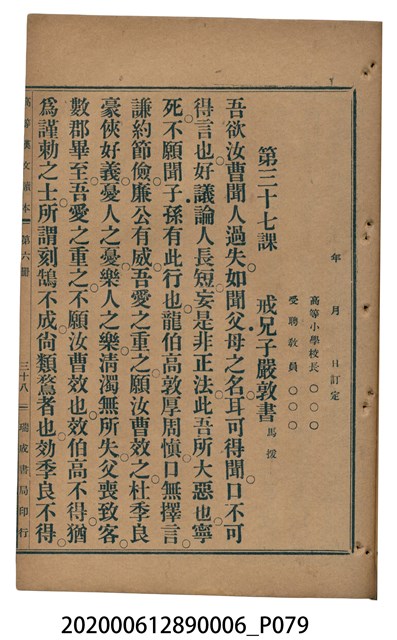 年　月　日訂定
高等小學校長　○○○
受聘教員　○○○
第三十七課　戒兄子嚴敦書　馬援
吾欲汝曹聞人過失。如聞父母之名。耳可得聞。口不可
得言也。好議論人長短。妄是非正法。此吾所大惡也。寧
死不願聞子孫有此行也。龍伯高敦厚周慎。口無擇言。
謙約節儉。廉公有威。吾愛之重之。願汝曹效之。杜季良
豪俠好義。憂人之憂。樂人之樂。清濁無所失。父喪致客。
數郡畢至。吾愛之重之。不願汝曹效也。效伯高不得。猶
為謹勅之士。所謂刻鵠不成尚類鶩者也。効季良不得。
高等漢文讀本　第六冊　三十八　瑞成書局印行
202000612890006_P079